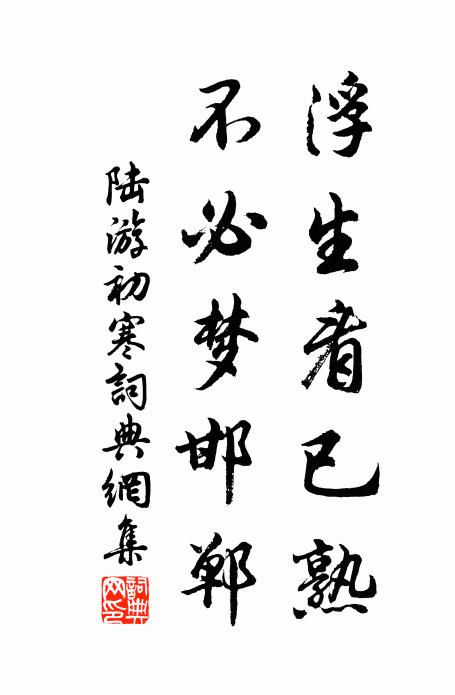 浮生看已熟
不必梦邯鄲
陆游初寒詞典網集
詞典
网印